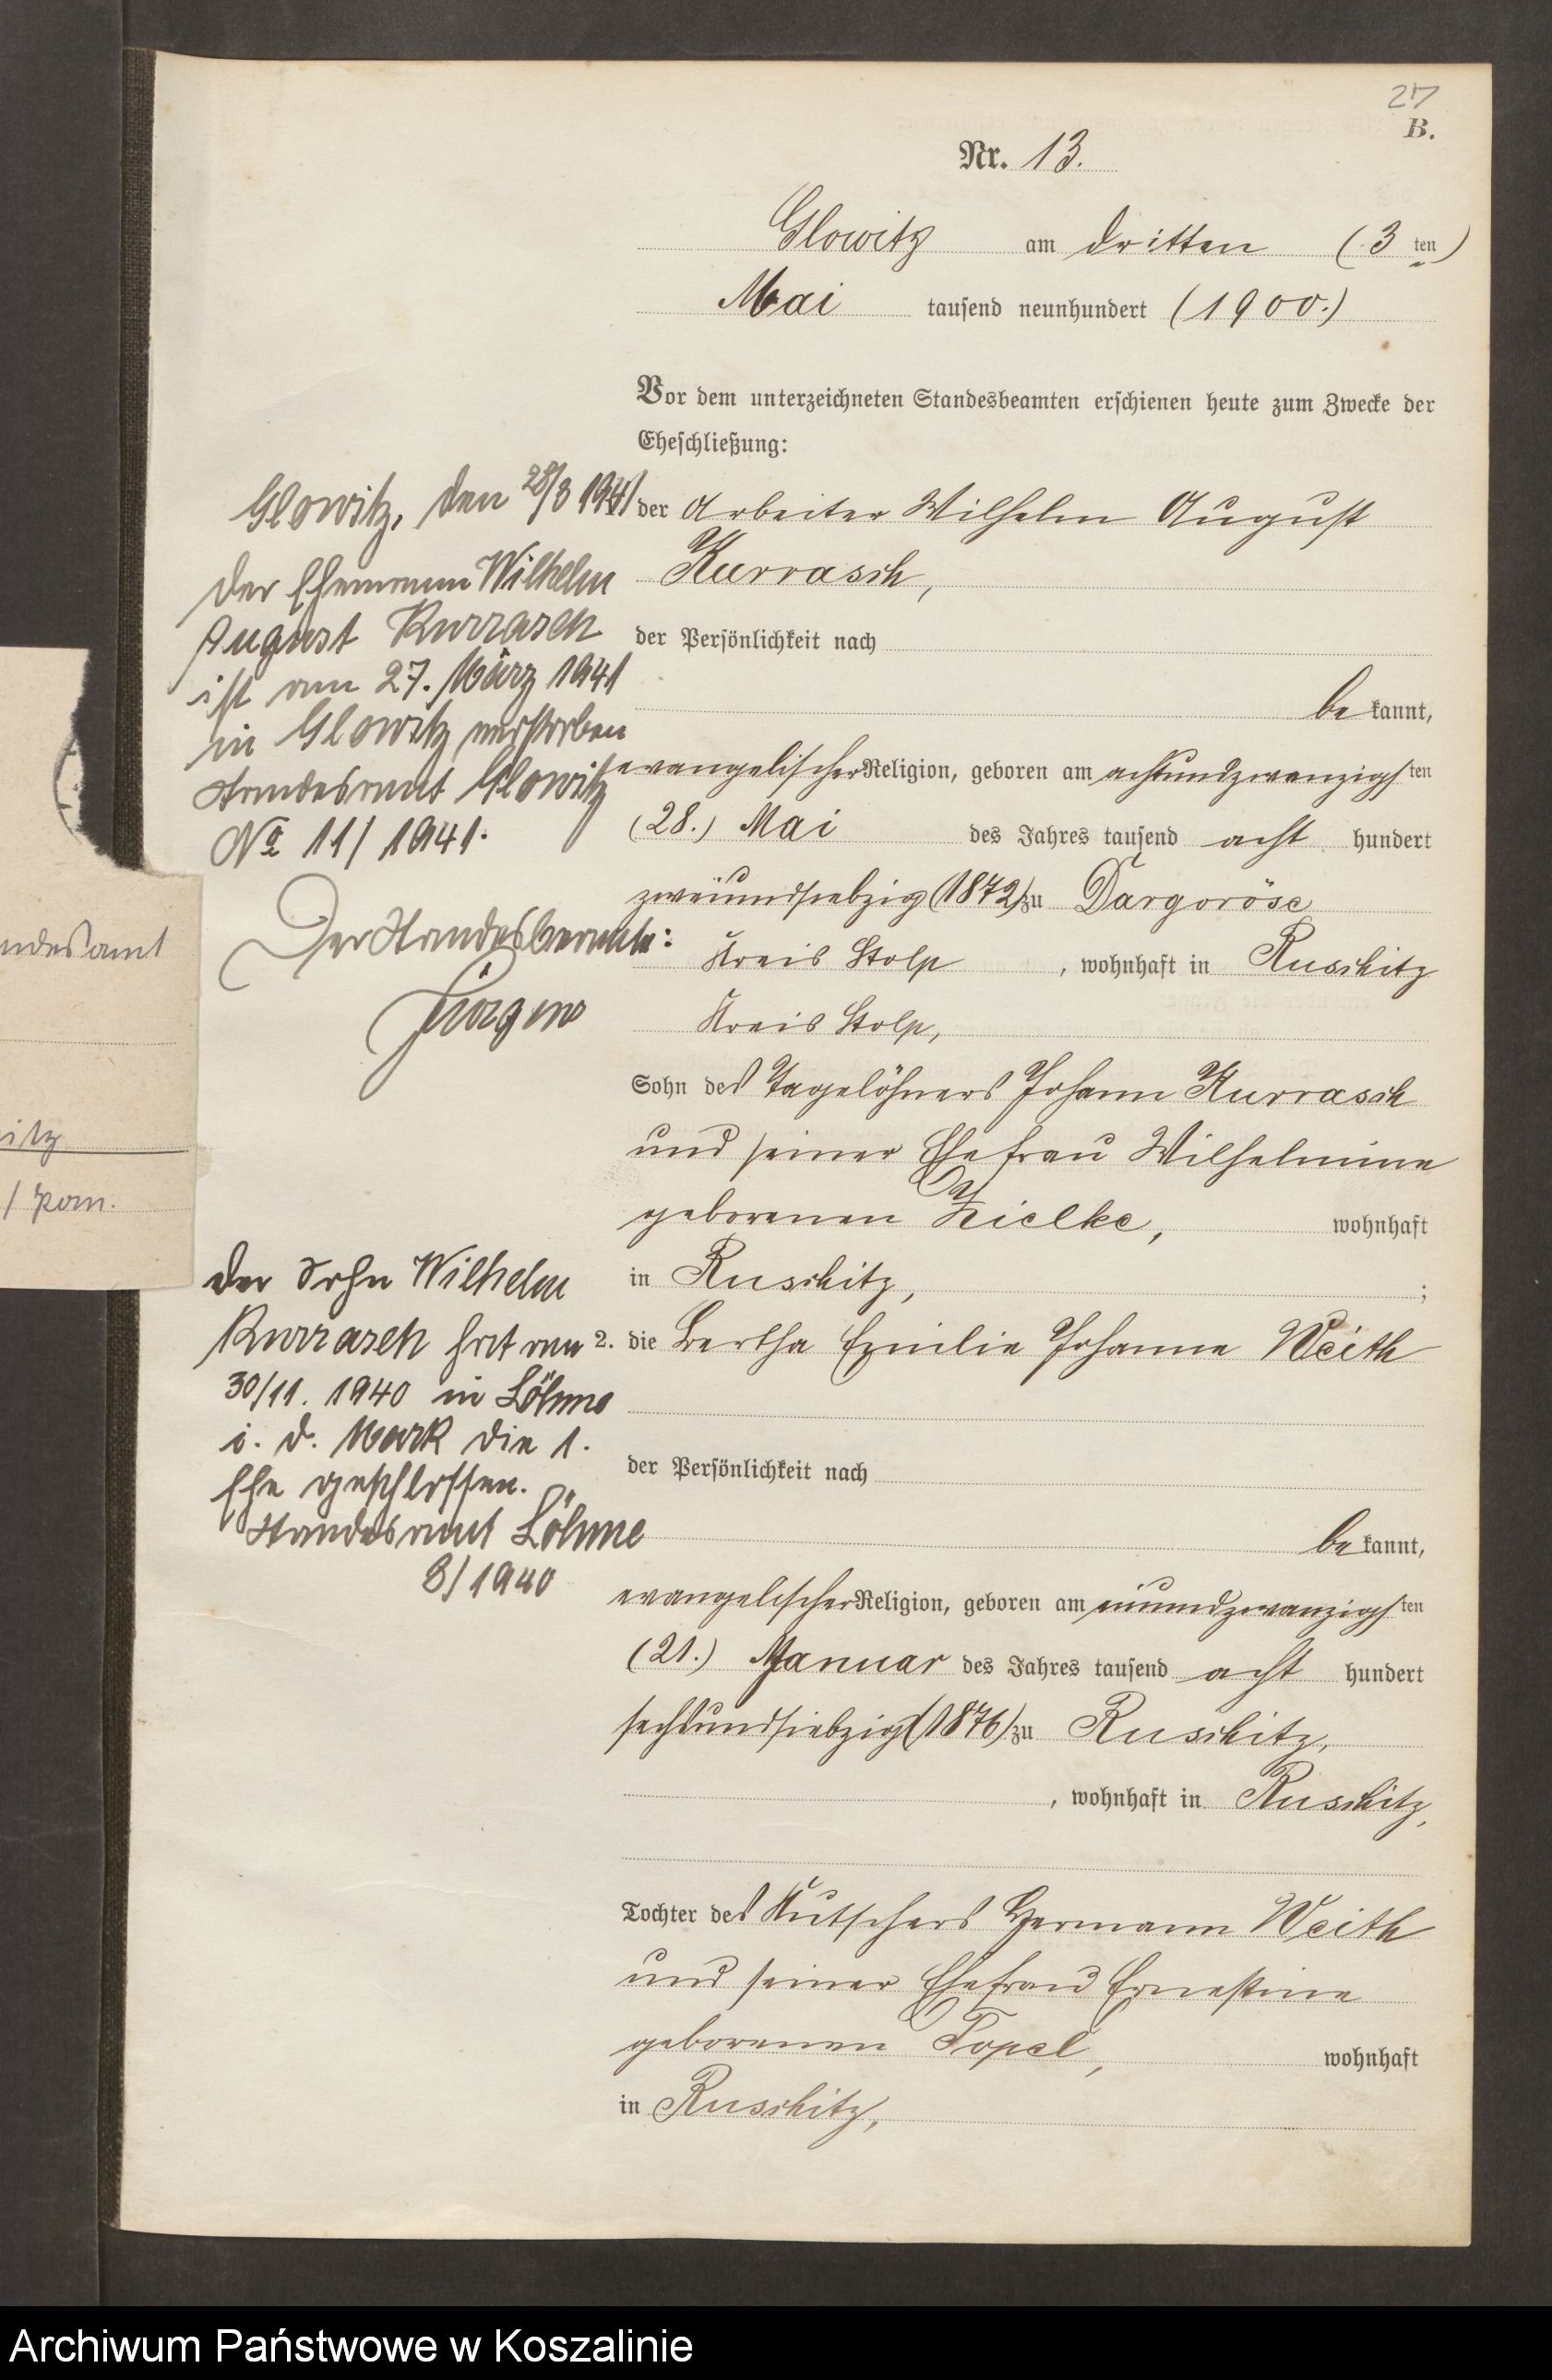 27
B.
Nr. 13.
Glowitz am dritten (3 ten)
Mai tausend neunhundert (1900.)
Vor dem unterzeichneten Standesbeamten erschienen heute zum Zwecke der
Eheschließung:
der Arbeiter Wilhelm August
Kurrasch,
der Persönlichkeit nach
be kannt,
evangelischer Religion, geboren am achtundzwanzigsten
(28.) Mai des Jahres tausend acht hundert
zweiundsiebzig (1872) zu Dargoröse
Kreis Stolp, wohnhaft in Ruschitz
Kreis Stolp,
Sohn des Tagelöhners Johann Kurrasch
und seiner Ehefrau Wilhelmine
geborenen Zielke, wohnhaft
in Ruschitz, ;
2. die Bertha Emilie Johanne Weith
der Persönlichkeit nach
be kannt,
evangelischer Religion, geboren am einundzwanzigsten
(21.) Januar des Jahres tausend acht hundert
sechsundsiebzig (1876) zu Ruschitz,
, wohnhaft in Ruschitz,
Tochter des Kutschers Hermann Weith
und seiner Ehefrau Ernestine
geborenen Topel, wohnhaft
in Ruschitz,
Glowitz, den 28/3 1941
Der Ehemann Wilhelm
August Kurrasch
ist am 27. März 1941
in Glowitz verstorben
Standesamt Glowitz
No 11/1941.
Der Standesbeamte:
Der Sohn Wilhelm
Kurrasch hat am
30/11. 1940 in Löhme
i. d. Mark die 1.
Ehe geschlossen.
Standesamt Löhme
8/1940
ndesamt
itz
/ Pom.
Archiwum Państwowe w Koszalinie